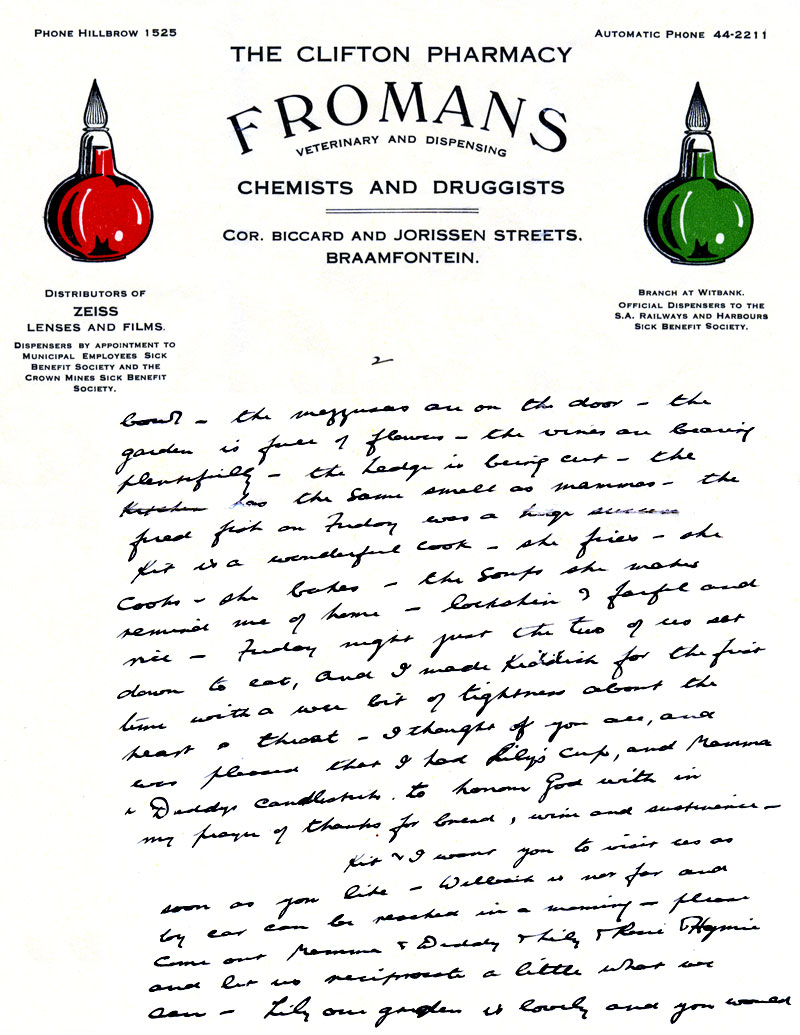 PHONE HILLBROW 1525
AUTOMATIC PHONE 44-2211
THE CLIFTON PHARMACY
FROMANS
VETERINARY AND DISPENSING
CHEMISTS AND DRUGGISTS
COR. BICCARD AND JORISSEN STREETS.
BRAAMFONTEIN.
DISTRIBUTORS OF
ZEISS
LENSES AND FILMS.
DISPENSERS BY APPOINTMENT TO
MUNICIPAL EMPLOYEES SICK
BENEFIT SOCIETY AND THE
CROWN MINES SICK BENEFIT
SOCIETY.
BRANCH AT WITBANK.
OFFICIAL DISPENSERS TO THE
S.A. RAILWAYS AND HARBOURS
SICK BENEFIT SOCIETY.
2
bowl – the mezzuzas are on the door – the
garden is full of flowers – the vines are bearing
plentifully – the hedge is being cut – the
Kitchen has the same smell as mammas – the
fried fish on Friday was a huge success
Kit is a wonderful cook – she fries – she
cooks – she bakes – the soups she makes
remind me of home – lockshin & farfel and
rice – Friday night just the two of us sat
down to eat, and I made Kiddish for the first
time with a wee bit of tightness about the
heart & throat – I thought of you all, and
was pleased that I had Lily's cup, and Mamma
& Daddys candlesticks to honour God with in
my prayer of thanks for bread, wine and sustinence –
Kit & I want you to visit us as
soon as you like – is not far and
by car can be reached in a morning – please
come out Mamma & Daddy & Lily & Rosie & Hymie
and let us reciprocate a little what we
can – Lily our garden is lovely and you would